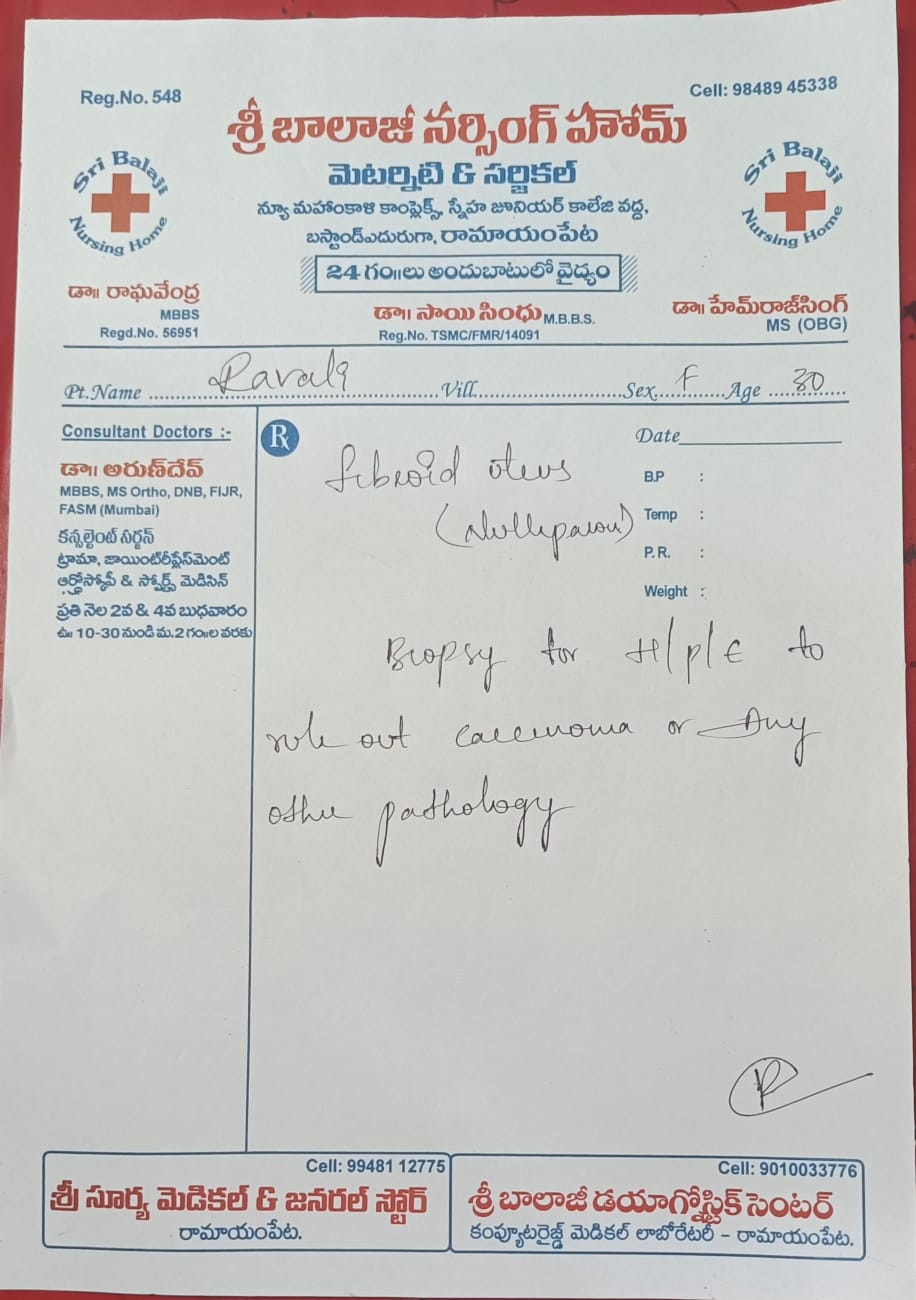 Reg.No. 548
Cell: 98489 45338
శ్రీ బాలాజీ నర్సింగ్ హోమ్
మెటర్నిటి & సర్జికల్
న్యూ మహంకాళి కాంప్లెక్స్, స్నేహ జూనియర్ కాలేజి వద్ద,
బస్టాండ్ఎదురుగా, రామాయంపేట
24 గం॥లు అందుబాటులో వైద్యం
Sri Balaji
Nursing Home
Sri Balaji
Nursing Home
డా॥ రాఘవేంద్ర
MBBS
Regd.No. 56951
డా॥ సాయి సింధు M.B.B.S.
Reg.No. TSMC/FMR/14091
డా॥ హేమ్‌రాజ్‌సింగ్
MS (OBG)
Pt.Name Ravali Vill. Sex F Age 30
Consultant Doctors :-
డా॥ అరుణ్‌దేవ్
MBBS, MS Ortho, DNB, FIJR,
FASM (Mumbai)
కన్సల్టెంట్ సర్జన్
ట్రామా, జాయింట్‌రీప్లేస్‌మెంట్
ఆర్థ్రోస్కోపీ & స్పోర్ట్స్ మెడిసిన్
ప్రతి నెల 2వ & 4వ బుధవారం
ఉ॥ 10-30 నుండి మ.2 గం॥ల వరకు
Rx
Date
B.P :
Temp :
P.R. :
Weight :
fibroid uterus
(Nulliparous)
Biopsy for H/P/E to
rule out carcinoma or Any
other pathology
Cell: 99481 12775
శ్రీ సూర్య మెడికల్ & జనరల్ స్టోర్
రామాయంపేట.
Cell: 9010033776
శ్రీ బాలాజీ డయాగ్నోస్టిక్ సెంటర్
కంప్యూటరైజ్డ్ మెడికల్ లాబోరేటరీ - రామాయంపేట.